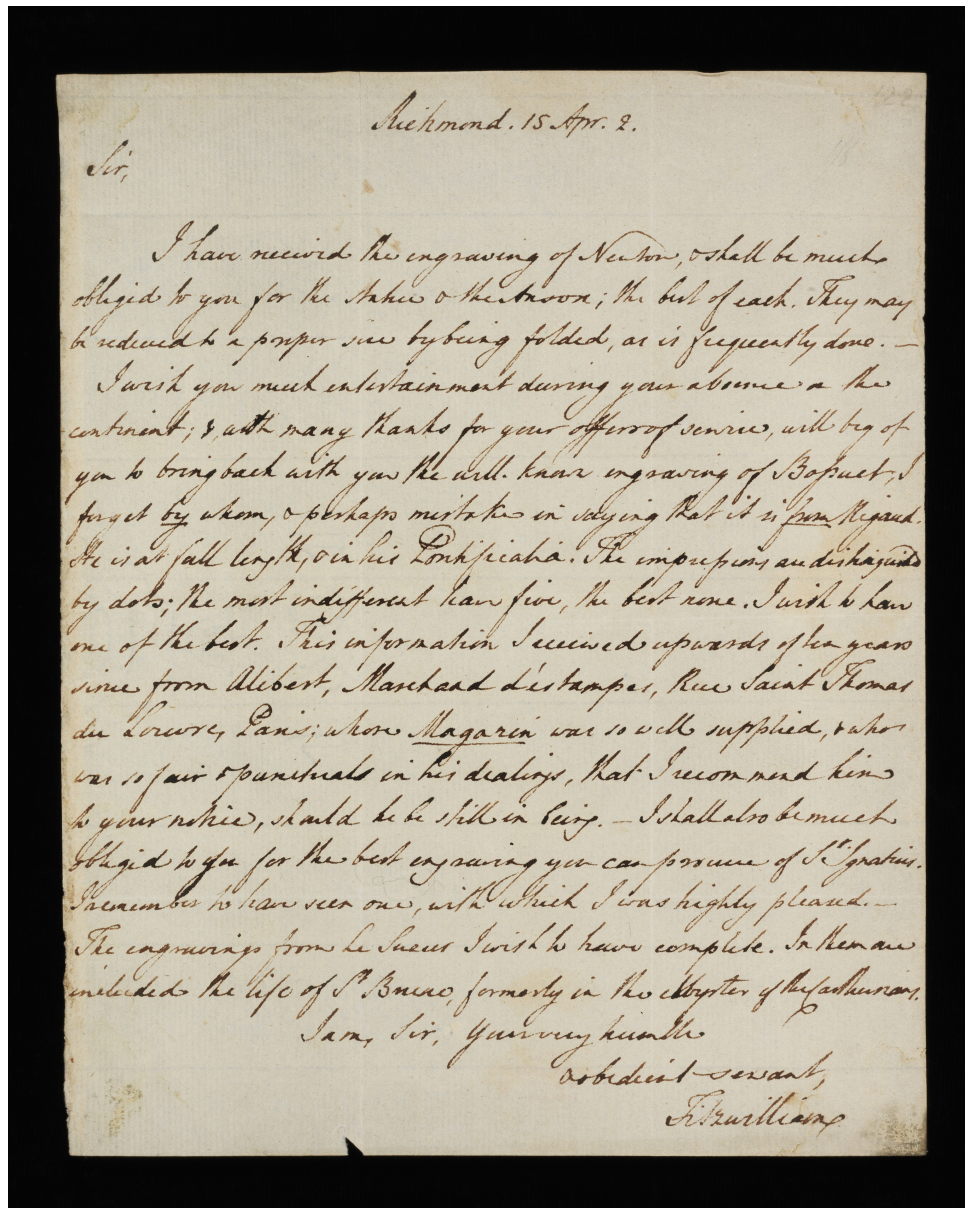 Richmond. 15 Apr. 2.
Sir,
I have received the engraving of Newton, & shall be much
obliged to you for the & the Anson; the best of each. They may
be reduced to a proper size by being folded, as is frequently done. —
I wish you much entertainment during your absence on the
continent; &, with many thanks for your offer of service, will beg of
you to bring back with you the well-known engraving of Bossuet, I
forget by whom, & perhaps mistake in saying that it is from Rigaud.
He is at full length, & in his Pontificalia. The impressions are distinguished
by dots; the most indifferent have five, the best none. I wish to have
one of the best. This information I received upwards of ten years
since from Alibert, Marchand d'estampes, Rue Saint Thomas
du Louvre, Paris; whose Magazin was so well supplied, & who
was so fair & punctual in his dealings, that I recommend him
to your notice, should he be still in being. — I shall also be much
obliged to you for the best engraving you can procure of St. Ignatius.
I remember to have seen one, with which I was highly pleased. —
The engravings from Le Sueur I wish to have complete. In them are
included the life of St. Bruno, formerly in the of the Carthusians.
I am, Sir, your very humble
& obedient servant,
Fitzwilliam